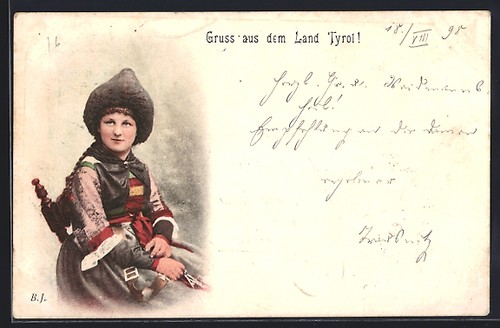 Gruss aus dem Land Tyrol!
18./VIII 98
Herzl. Gr. u. Weidmanns
heil!
Empfehlung an die Damen
B. J.